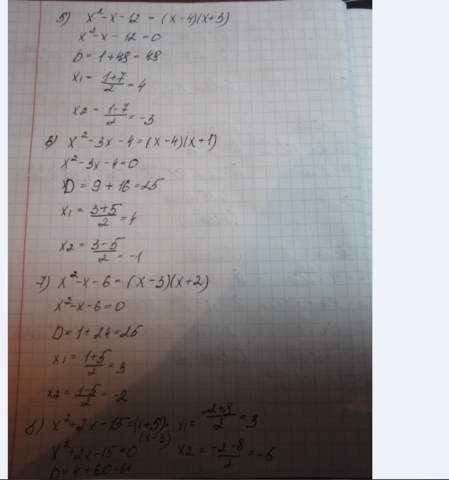 5) x²-x-12 = (x-4)(x+3)
x²-x-12=0
D = 1+48=48
x1 = (1+7)/2 = 4
x2 = (1-7)/2 = -3
6) x²-3x-4=(x-4)(x+1)
x²-3x-4=0
D = 9+16=25
x1 = (3+5)/2 = 4
x2 = (3-5)/2 = -1
7) x²-x-6=(x-3)(x+2)
x²-x-6=0
D=1+24=25
x1 = (1+5)/2 = 3
x2 = (1-5)/2 = -2
8) x²+2x-15=(x+5)·(x-3)
x²+2x-15=0
D=4+60=64
x1 = (-2+8)/2 = 3
x2 = (-2-8)/2 = -5